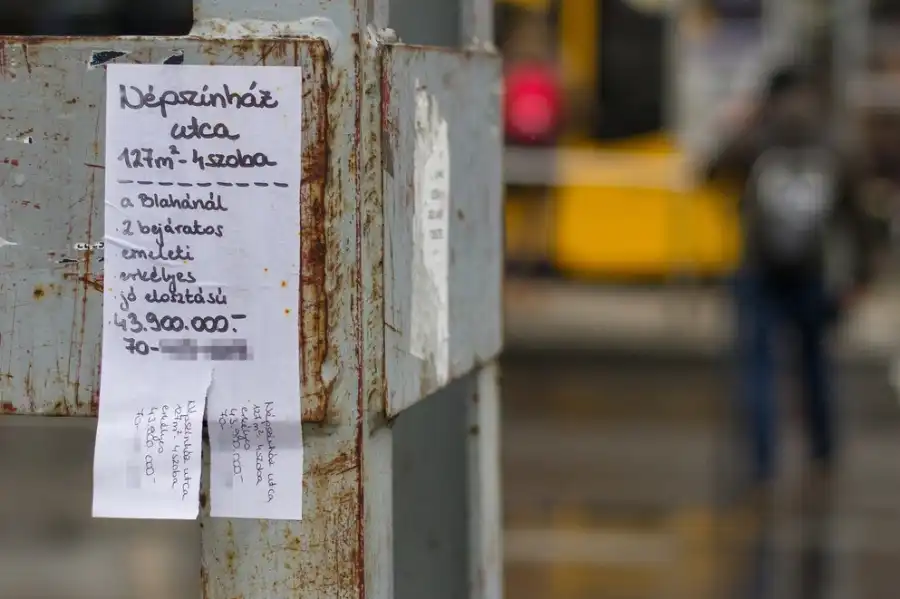 Népszínház
utca
127m² - 4szoba
a Blahánál
2 bejáratos
emeleti
erkélyes
jó elosztású
43.900.000.-
70-
Népszínház utca
127m². 4szoba
erkélyes
43.900 000-
70-
Népszínház utca
127m². 4szoba
erkélyes
43.900.000-
70-